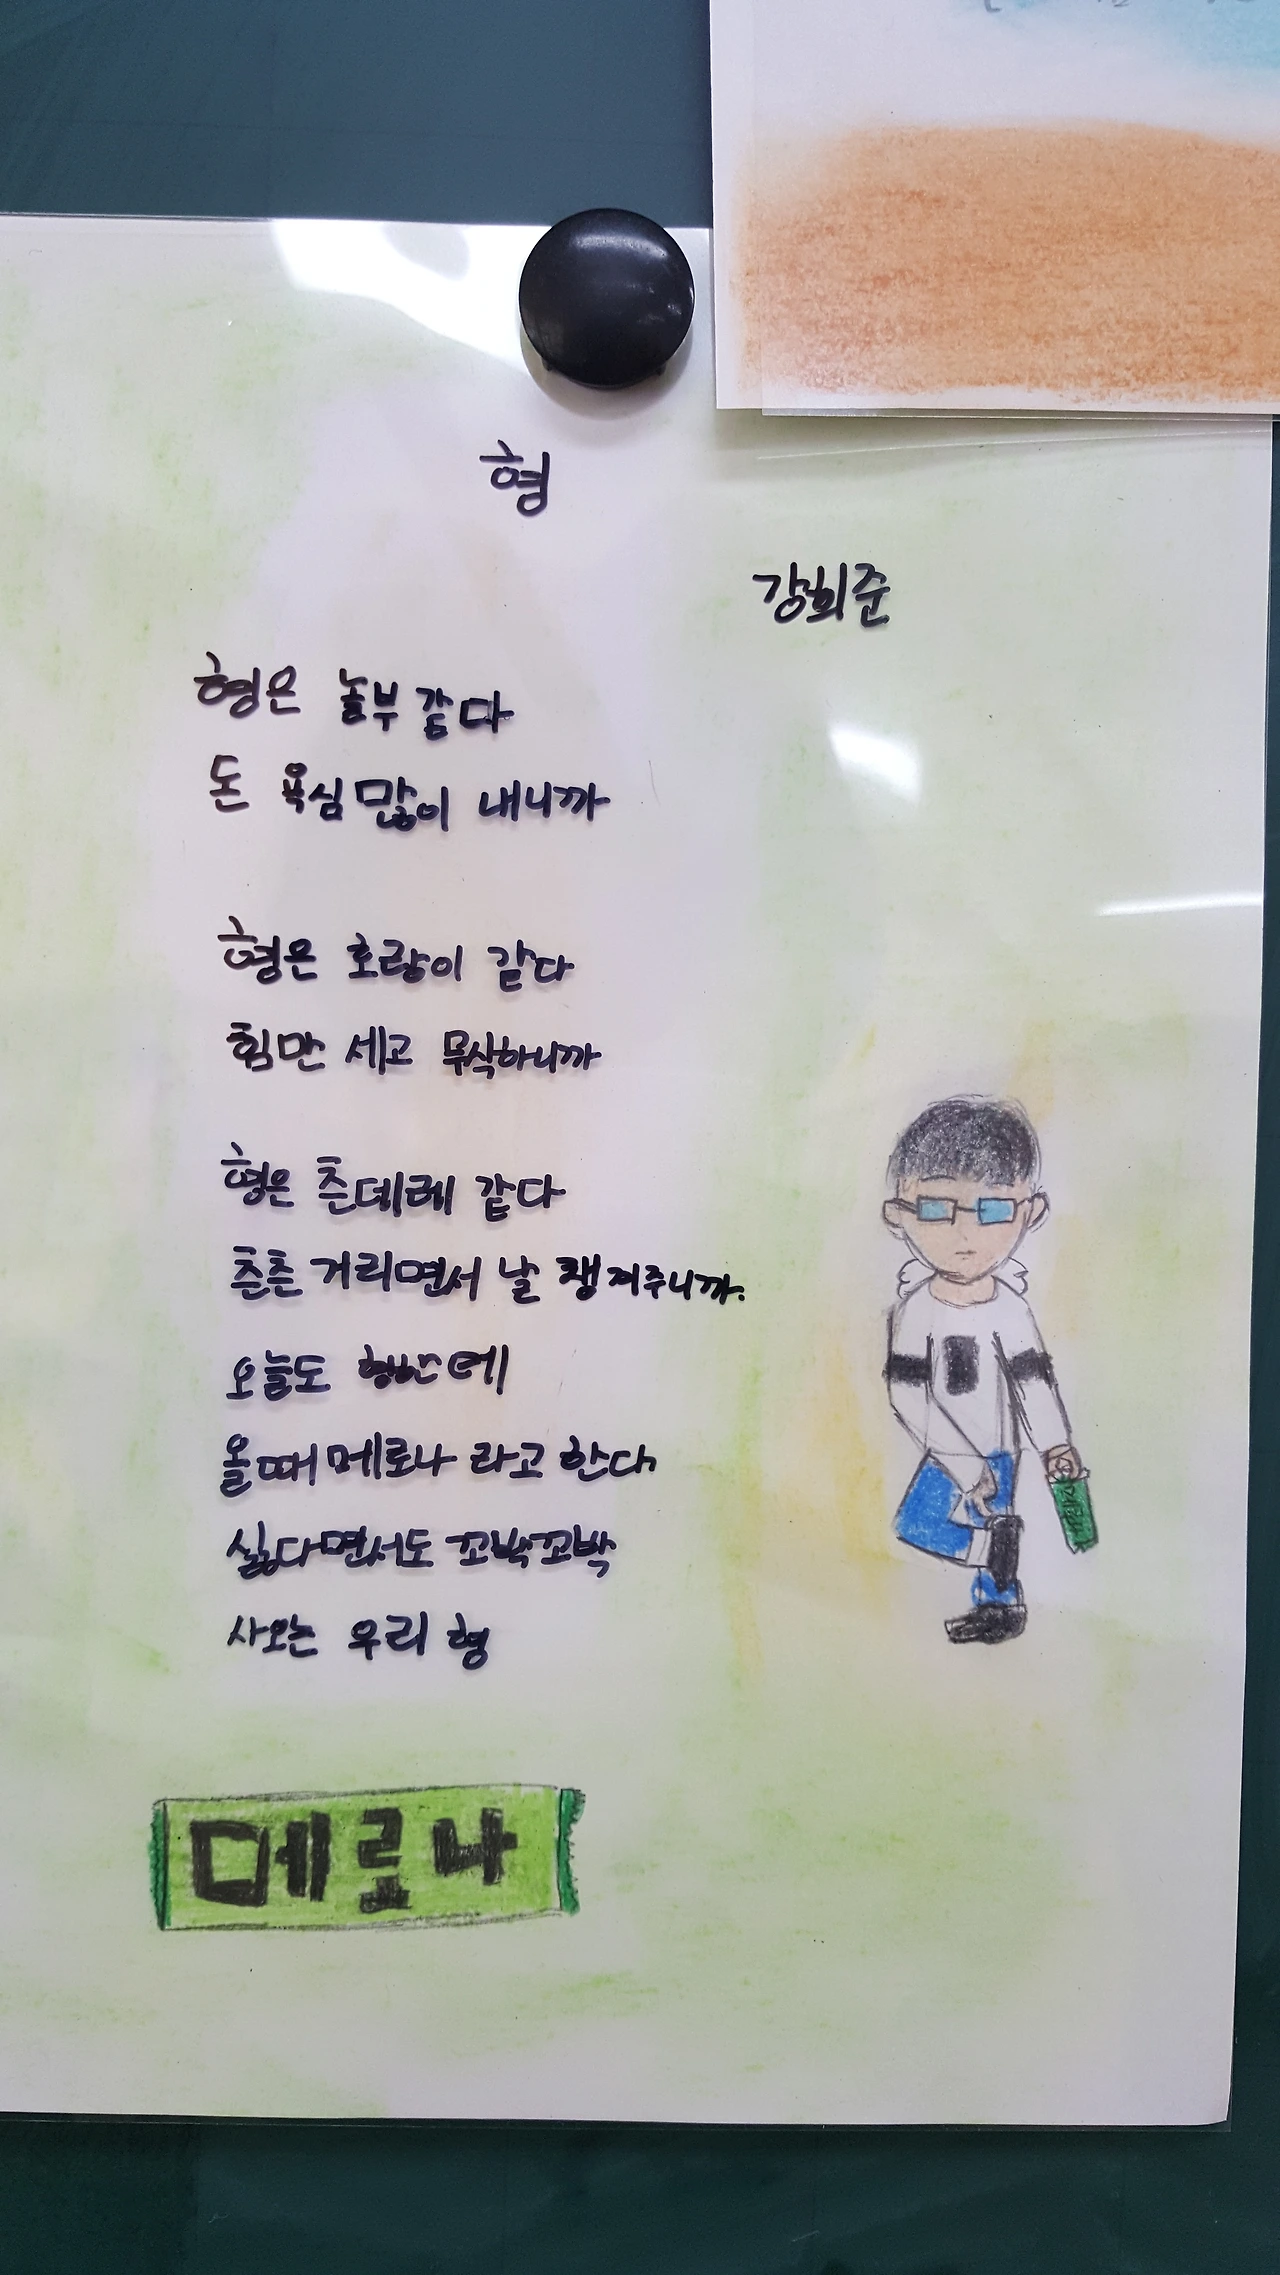 형
강희준
형은 놀부 같다
돈 욕심 많이 내니까
형은 호랑이 같다
힘만 세고 무식하니까
형은 츤데레 같다
츤츤 거리면서 날 챙겨주니까.
오늘도 형한테
올때 메로나 라고 한다
싫다면서도 꼬박꼬박
사오는 우리 형
메로나